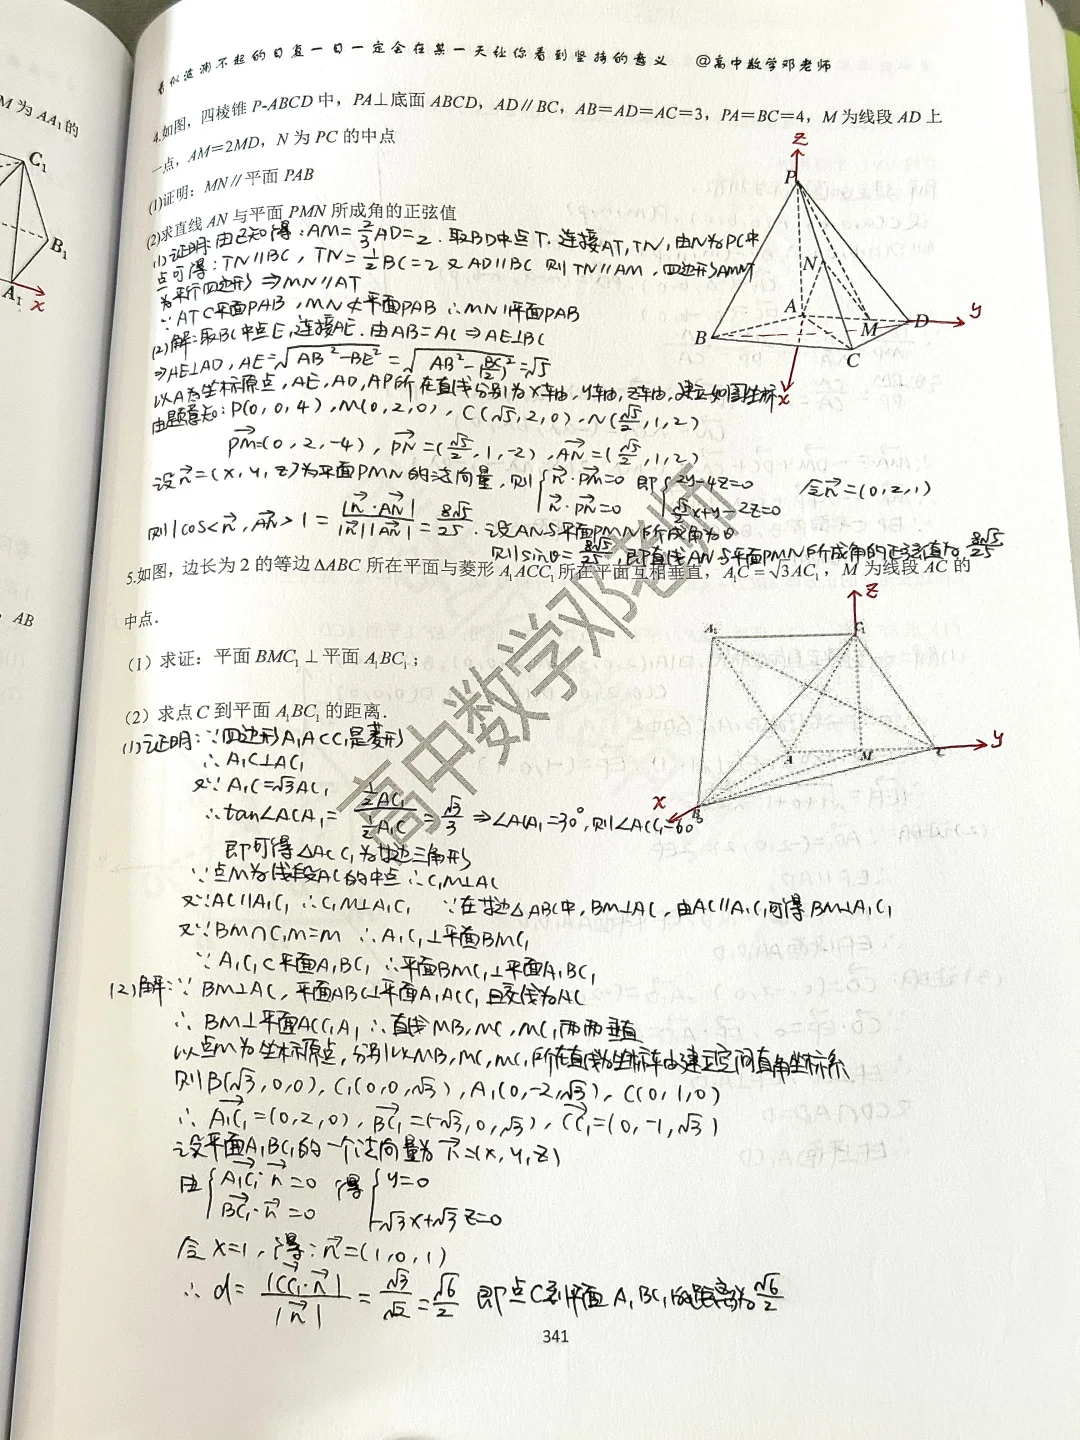 看似波澜不起的日复一日一定会在某一天让你看到坚持的意义 @高中数学邓老师
M 为 AA₁的
C₁
B₁
A₁
x
AB
4.如图，四棱锥 P-ABCD 中，PA⊥底面 ABCD，AD∥BC，AB=AD=AC=3，PA=BC=4，M 为线段 AD 上
一点，AM=2MD，N 为 PC 的中点
(1)证明：MN∥平面 PAB
(2)求直线 AN 与平面 PMN 所成角的正弦值
(1)证明：由已知得：AM=2/3AD=2．取BD中点T，连接AT,TN，由N为PC中
点可得：TN∥BC，TN=1/2BC=2 又AD∥BC 则TN∥AM，四边形AMNT
为平行四边形 ⇒MN∥AT
∵AT⊂平面PAB，MN⊄平面PAB ∴MN∥平面PAB
(2)解：取BC中点E，连接AE．由AB=AC ⇒AE⊥BC
⇒AE⊥AD，AE=√(AB²-BE²)=√(AB²-(BC/2)²)=√5
以A为坐标原点，AE，AD，AP所在直线分别为x轴，y轴，z轴，建立如图坐标
由题意知：P(0,0,4)，M(0,2,0)，C(√5,2,0)，N(√5/2,1,2)
PM→=(0,2,-4)，PN→=(√5/2,1,-2)，AN→=(√5/2,1,2)
设n→=(x,y,z)为平面PMN的法向量，则{n→·PM→=0 即{2y-4z=0 令n→=(0,2,1)
n→·PN→=0 √5/2x+y-2z=0
则|cos<n→,AN→>|=|n→·AN→|/|n→||AN→|=8√5/25．设AN与平面PMN所成角为θ
则sinθ=8√5/25，即直线AN与平面PMN所成角的正弦值为8√5/25
z
P
N
A
M
D
y
B
C
x
5.如图，边长为 2 的等边 ΔABC 所在平面与菱形 A₁ACC₁ 所在平面互相垂直，A₁C=√3AC₁，M 为线段 AC 的
中点．
（1）求证：平面 BMC₁⊥平面 A₁BC₁；
（2）求点 C 到平面 A₁BC₁ 的距离．
z
A₁
C₁
A
M
C
y
x
B
(1)证明：∵四边形A₁ACC₁是菱形
∴A₁C⊥AC₁
又∵A₁C=√3AC₁
∴tan∠ACA₁=(1/2AC₁)/(1/2A₁C)=√3/3 ⇒∠ACA₁=30°，则∠ACC₁=60°
即可得△ACC₁为等边三角形
∵点M为线段AC的中点 ∴C₁M⊥AC
又∵AC∥A₁C₁ ∴C₁M⊥A₁C₁ ∵在等边△ABC中，BM⊥AC，由AC∥A₁C₁可得BM⊥A₁C₁
又∵BM∩C₁M=M ∴A₁C₁⊥平面BMC₁
∵A₁C₁⊂平面A₁BC₁ ∴平面BMC₁⊥平面A₁BC₁
(2)解：∵BM⊥AC，平面ABC⊥平面A₁ACC₁ 且交线为AC
∴BM⊥平面ACC₁A₁ ∴直线MB,MC,MC₁两两垂直
以点M为坐标原点，分别以MB,MC,MC₁所在直线为坐标轴建立空间直角坐标系
则B(√3,0,0)，C₁(0,0,√3)，A₁(0,-2,√3)，C(0,1,0)
∴A₁C₁→=(0,2,0)，BC₁→=(-√3,0,√3)，CC₁→=(0,-1,√3)
设平面A₁BC₁的一个法向量为n→=(x,y,z)
由{A₁C₁→·n→=0 得{y=0
BC₁→·n→=0 -√3x+√3z=0
令x=1，得：n→=(1,0,1)
∴d=|CC₁→·n→|/|n→|=√3/√2=√6/2 即点C到平面A₁BC₁的距离为√6/2
高中数学邓老师
341